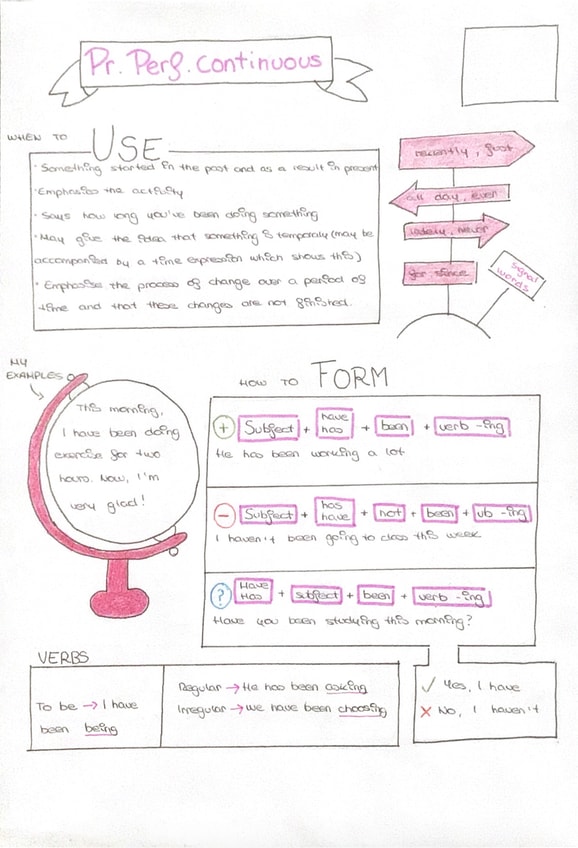 Pr. Perf. continuous
WHEN TO USE
· Something started in the past and as a result in present
· Emphasiss the activity
· Says how long you've been doing something
· May give the idea that something is temporaly (may be
accompanied by a time expression which shows this)
· Emphasise the process of change over a period of
time and that these changes are not finished.
recently, just
all day, ever
lately, never
for, since
signal
words
MY
EXAMPLES
This morning,
I have been doing
exercise for two
hours. Now, I'm
very glad!
HOW TO FORM
+ Subject + have has + been + verb -ing
He has been working a lot
- Subject + has have + not + been + vb -ing
I haven't been going to class this week
? Have Has + subject + been + verb -ing
Have you been studying this morning?
✓ Yes, I have
✗ No, I haven't
VERBS
To be → I have
been being
Regular → He has been asking
Irregular → we have been choosing